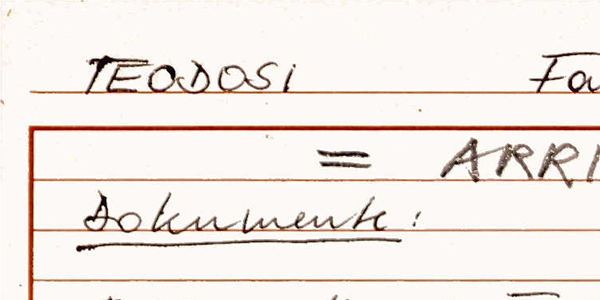 TEODOSi Fa
= ARRI
Dokumente: